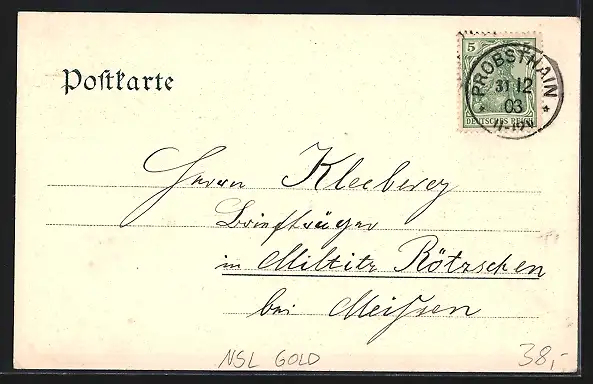 Postkarte
5
PROBSTHAIN
31 12
03
11-12V
DEUTSCHES REICH
Herrn Kleeberg
Briefträger
in Miltitz Rötzschen
bei Meißen
NSL GOLD
38,-